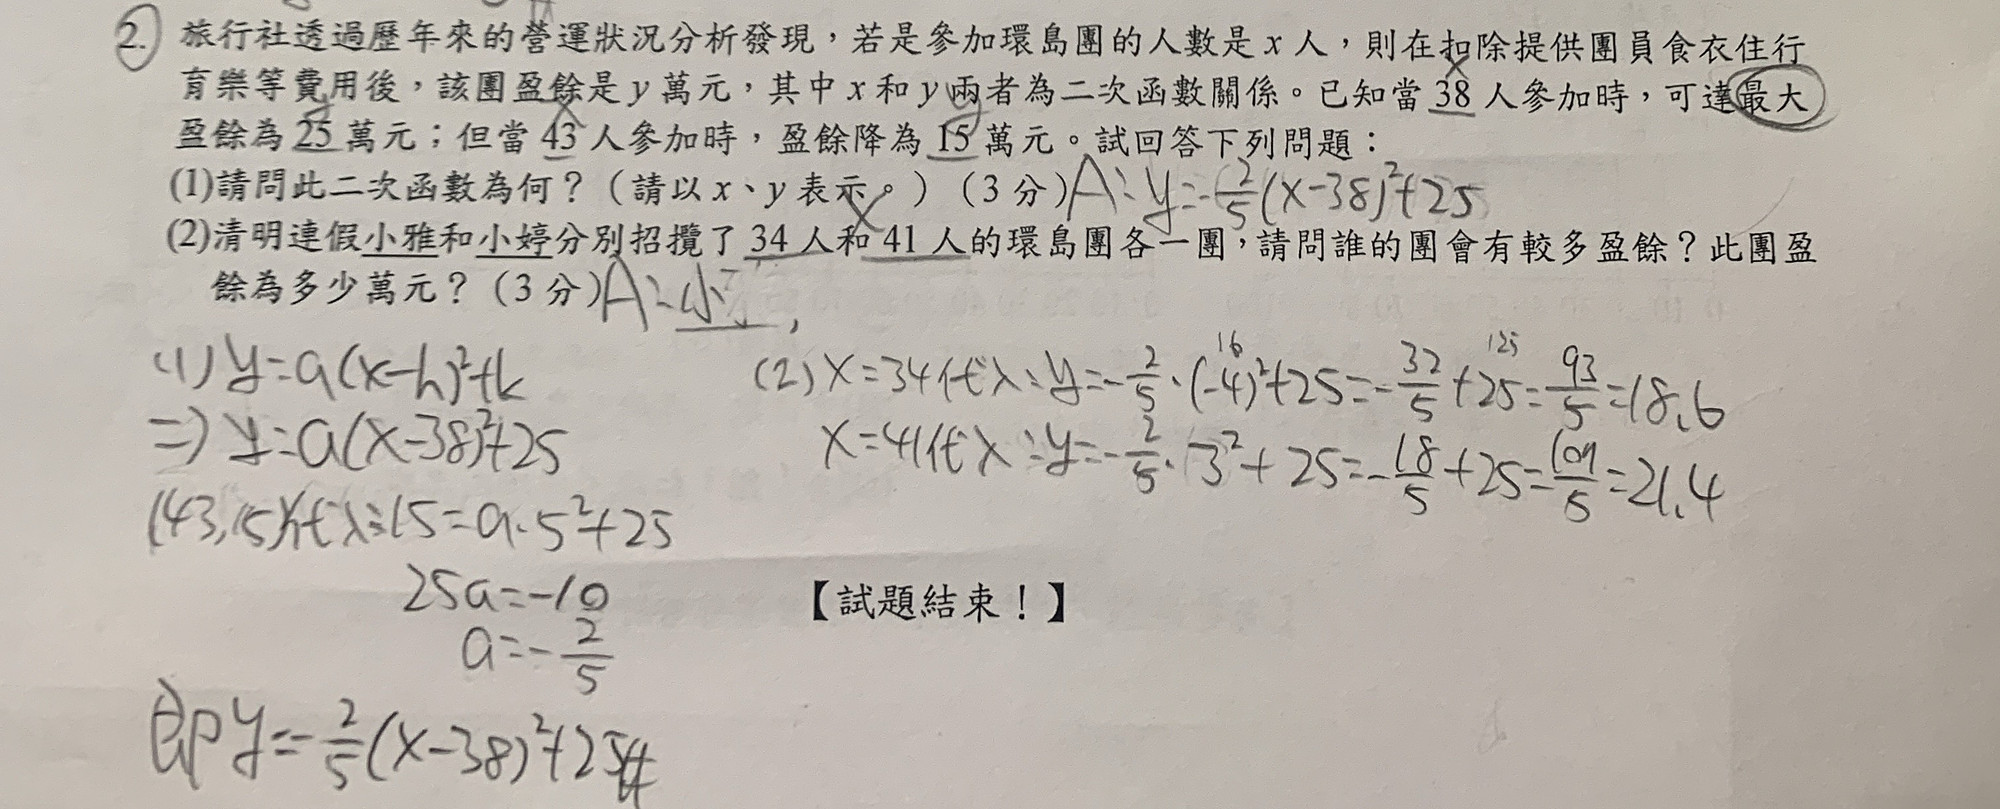 2. 旅行社透過歷年來的營運狀況分析發現，若是參加環島團的人數是 x 人，則在扣除提供團員食衣住行
育樂等費用後，該團盈餘是 y 萬元，其中 x 和 y 兩者為二次函數關係。已知當 38 人參加時，可達最大
盈餘為 25 萬元；但當 43 人參加時，盈餘降為 15 萬元。試回答下列問題：
(1)請問此二次函數為何？（請以 x、y 表示。）（3 分）A：y=-2/5(x-38)²+25
(2)清明連假小雅和小婷分別招攬了 34 人和 41 人的環島團各一團，請問誰的團會有較多盈餘？此團盈
餘為多少萬元？（3 分）A：小
(1) y=a(x-h)²+k
=> y=a(x-38)²+25
(43,15)代入：15=a·5²+25
25a=-10
a=-2/5
即 y=-2/5(x-38)²+25#
(2) x=34代入：y=-2/5·(-4)²+25=-32/5+25=93/5=18.6
16 125
x=41代入：y=-2/5·3²+25=-18/5+25=107/5=21.4
【試題結束！】